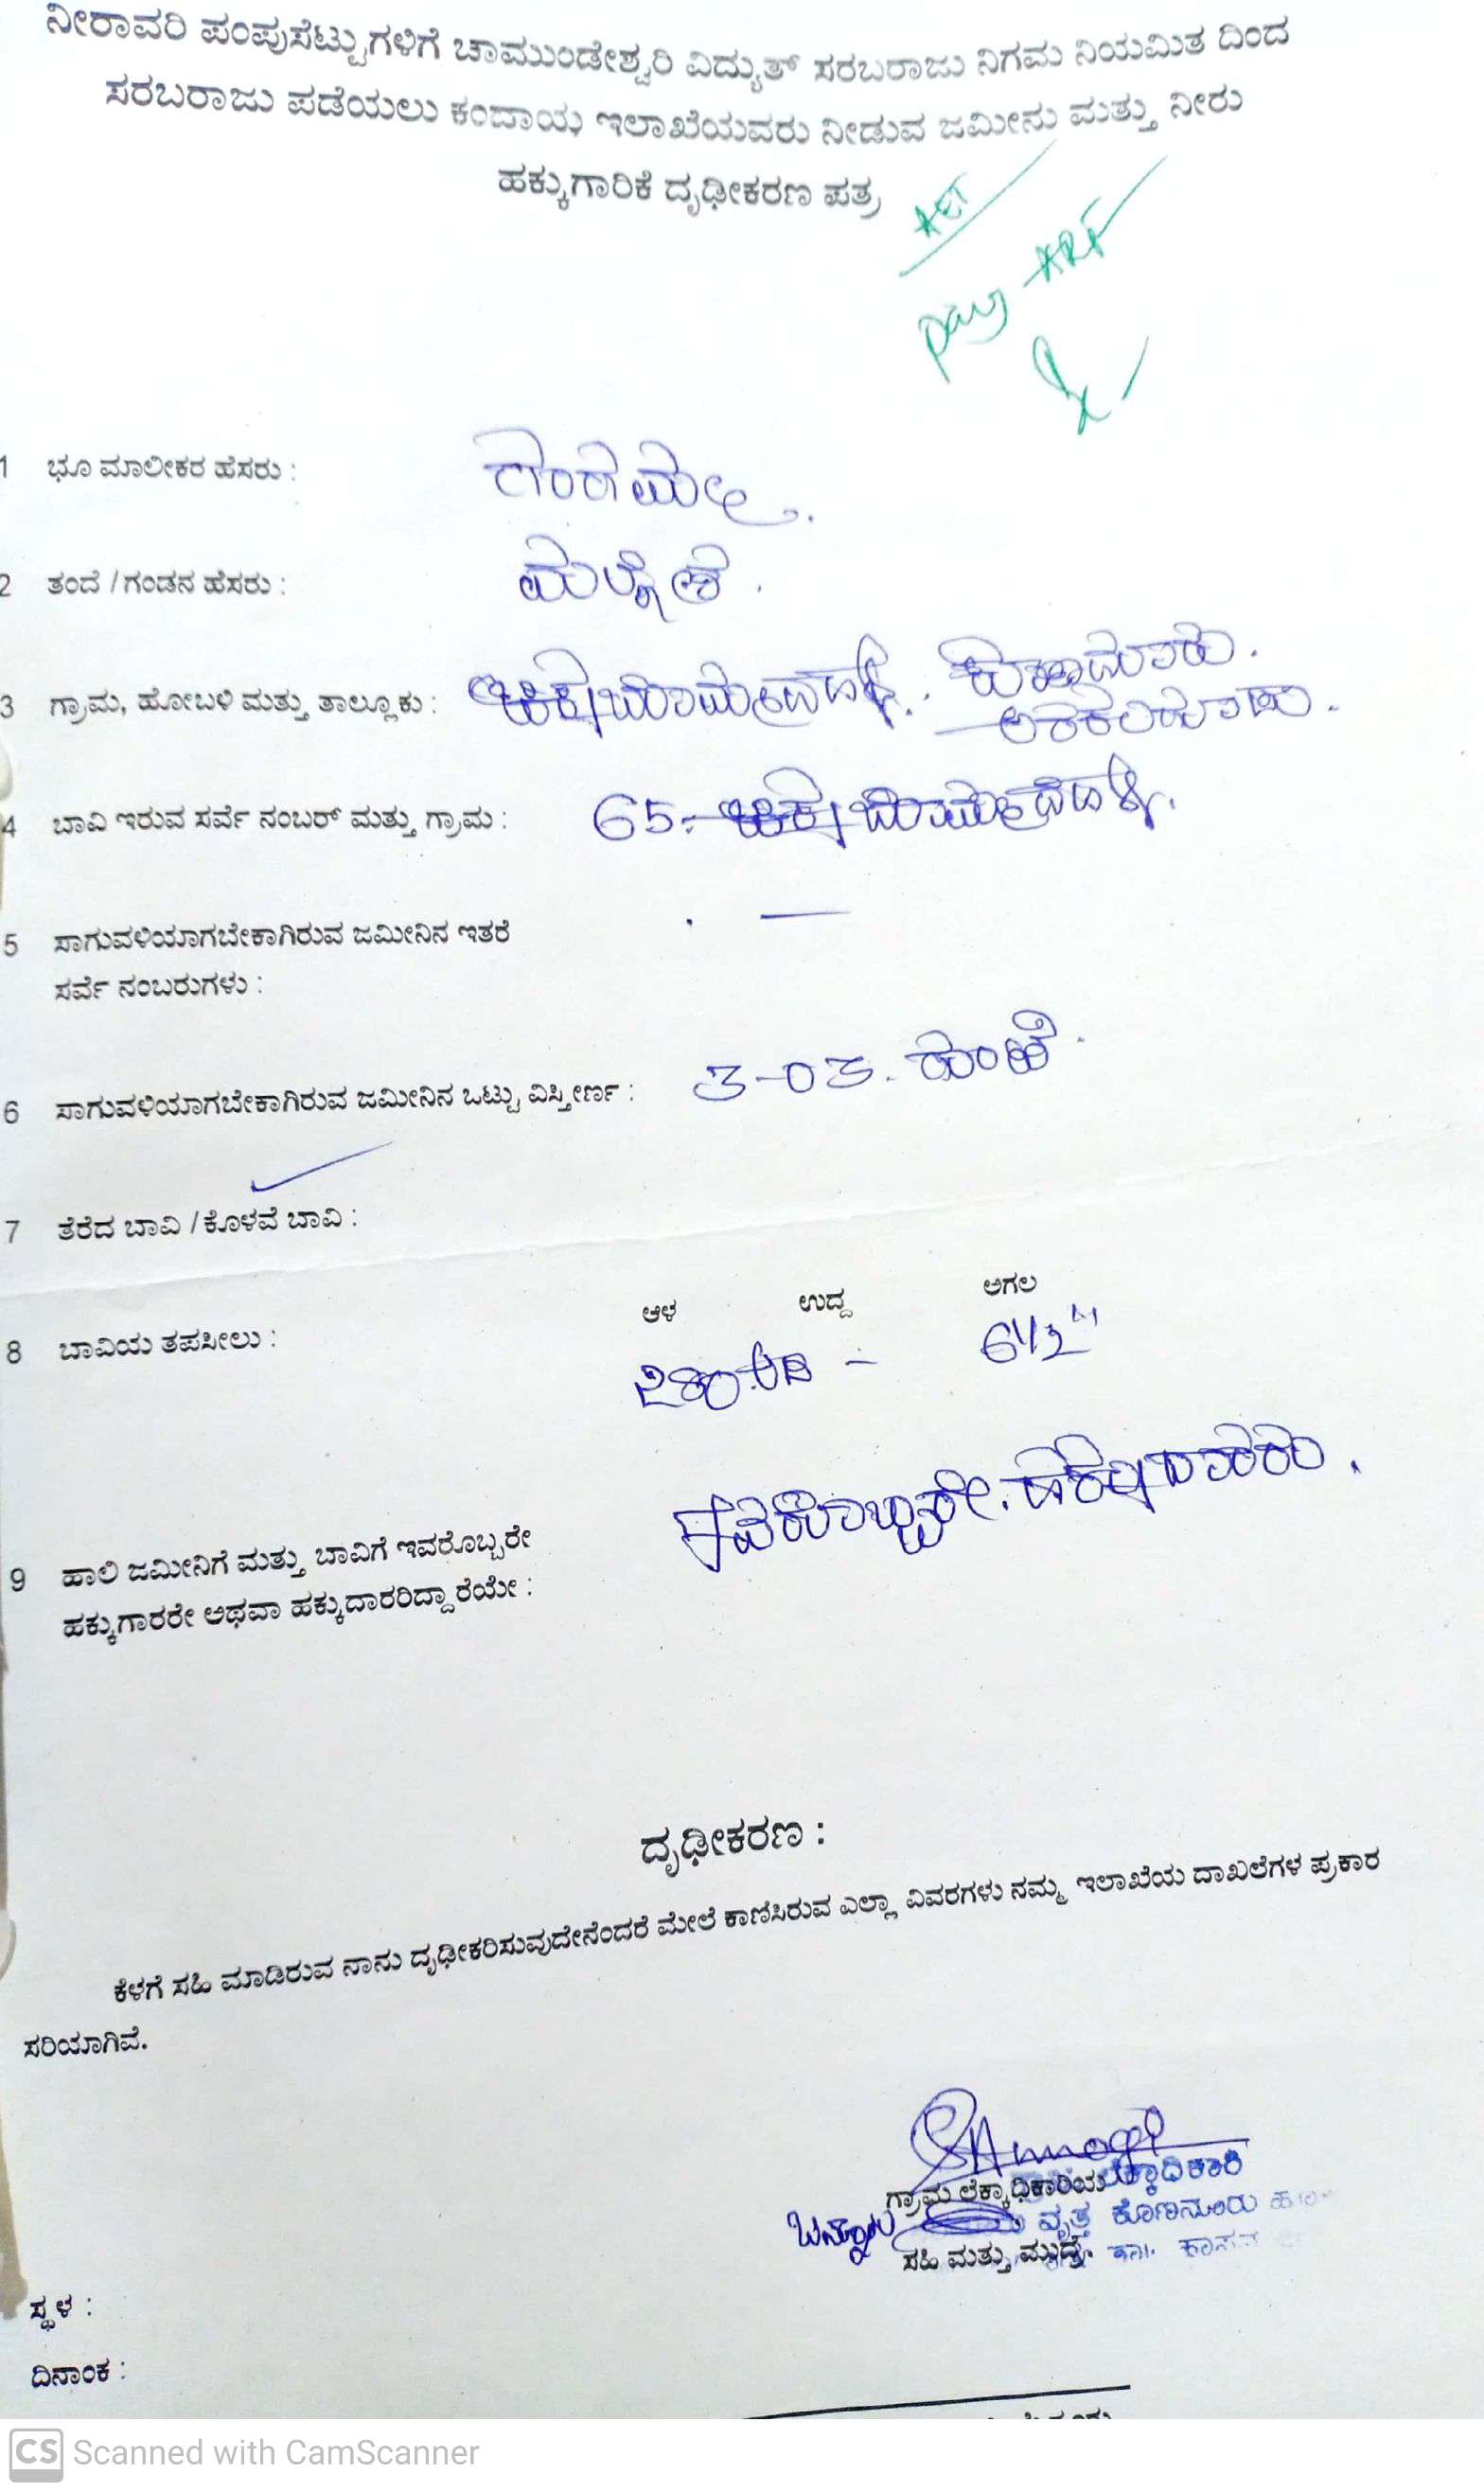 ನೀರಾವರಿ ಪಂಪುಸೆಟ್ಟುಗಳಿಗೆ ಚಾಮುಂಡೇಶ್ವರಿ ವಿದ್ಯುತ್ ಸರಬರಾಜು ನಿಗಮ ನಿಯಮಿತ ದಿಂದ
ಸರಬರಾಜು ಪಡೆಯಲು ಕಂದಾಯ ಇಲಾಖೆಯವರು ನೀಡುವ ಜಮೀನು ಮತ್ತು ನೀರು
ಹಕ್ಕುಗಾರಿಕೆ ದೃಢೀಕರಣ ಪತ್ರ
AET
pay ARF
1 ಭೂ ಮಾಲೀಕರ ಹೆಸರು :
2 ತಂದೆ / ಗಂಡನ ಹೆಸರು :
3 ಗ್ರಾಮ, ಹೋಬಳಿ ಮತ್ತು ತಾಲ್ಲೂಕು :
4 ಬಾವಿ ಇರುವ ಸರ್ವೆ ನಂಬರ್ ಮತ್ತು ಗ್ರಾಮ : 65.
5 ಸಾಗುವಳಿಯಾಗಬೇಕಾಗಿರುವ ಜಮೀನಿನ ಇತರೆ —
ಸರ್ವೆ ನಂಬರುಗಳು :
6 ಸಾಗುವಳಿಯಾಗಬೇಕಾಗಿರುವ ಜಮೀನಿನ ಒಟ್ಟು ವಿಸ್ತೀರ್ಣ : 3-03. ಕುಂಟೆ
7 ತೆರೆದ ಬಾವಿ / ಕೊಳವೆ ಬಾವಿ :
ಆಳ ಉದ್ದ ಅಗಲ
8 ಬಾವಿಯ ತಪಸೀಲು : 280 ಅಡಿ – 6 1/2"
ಇವರೊಬ್ಬರೇ. ಹಕ್ಕುದಾರರು.
9 ಹಾಲಿ ಜಮೀನಿಗೆ ಮತ್ತು ಬಾವಿಗೆ ಇವರೊಬ್ಬರೇ
ಹಕ್ಕುಗಾರರೇ ಅಥವಾ ಹಕ್ಕುದಾರರಿದ್ದಾರೆಯೇ :
ದೃಢೀಕರಣ :
ಕೆಳಗೆ ಸಹಿ ಮಾಡಿರುವ ನಾನು ದೃಢೀಕರಿಸುವುದೇನೆಂದರೆ ಮೇಲೆ ಕಾಣಿಸಿರುವ ಎಲ್ಲಾ ವಿವರಗಳು ನಮ್ಮ ಇಲಾಖೆಯ ದಾಖಲೆಗಳ ಪ್ರಕಾರ
ಸರಿಯಾಗಿವೆ.
ಗ್ರಾಮ ಲೆಕ್ಕಾಧಿಕಾರಿಯ ಲೆಕ್ಕಾಧಿಕಾರಿ
ವೃತ್ತ ಕೊಣನೂರು
ಸಹಿ ಮತ್ತು ಮುದ್ರೆ. ತಾ|. ಹಾಸನ
ಸ್ಥಳ :
ದಿನಾಂಕ :
CS Scanned with CamScanner